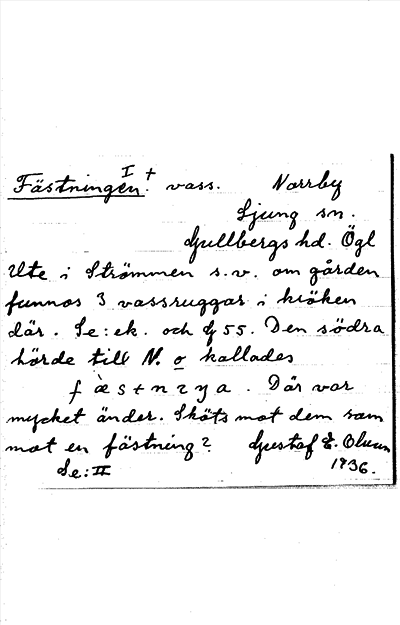 Fästningen. I + vass. Norrby
Ljung sn.
Gullbergs hd. Ögl
Ute i Strömmen s.v. om gården
funnos 3 vassruggar i kröken
där. Se: ek. och G 55. Den södra
hörde till N. o kallades
fæstnıŋa. Där var
mycket änder. Sköts mot dem som
mot en fästning? Gustaf E. Olsson
Se: II 1936.